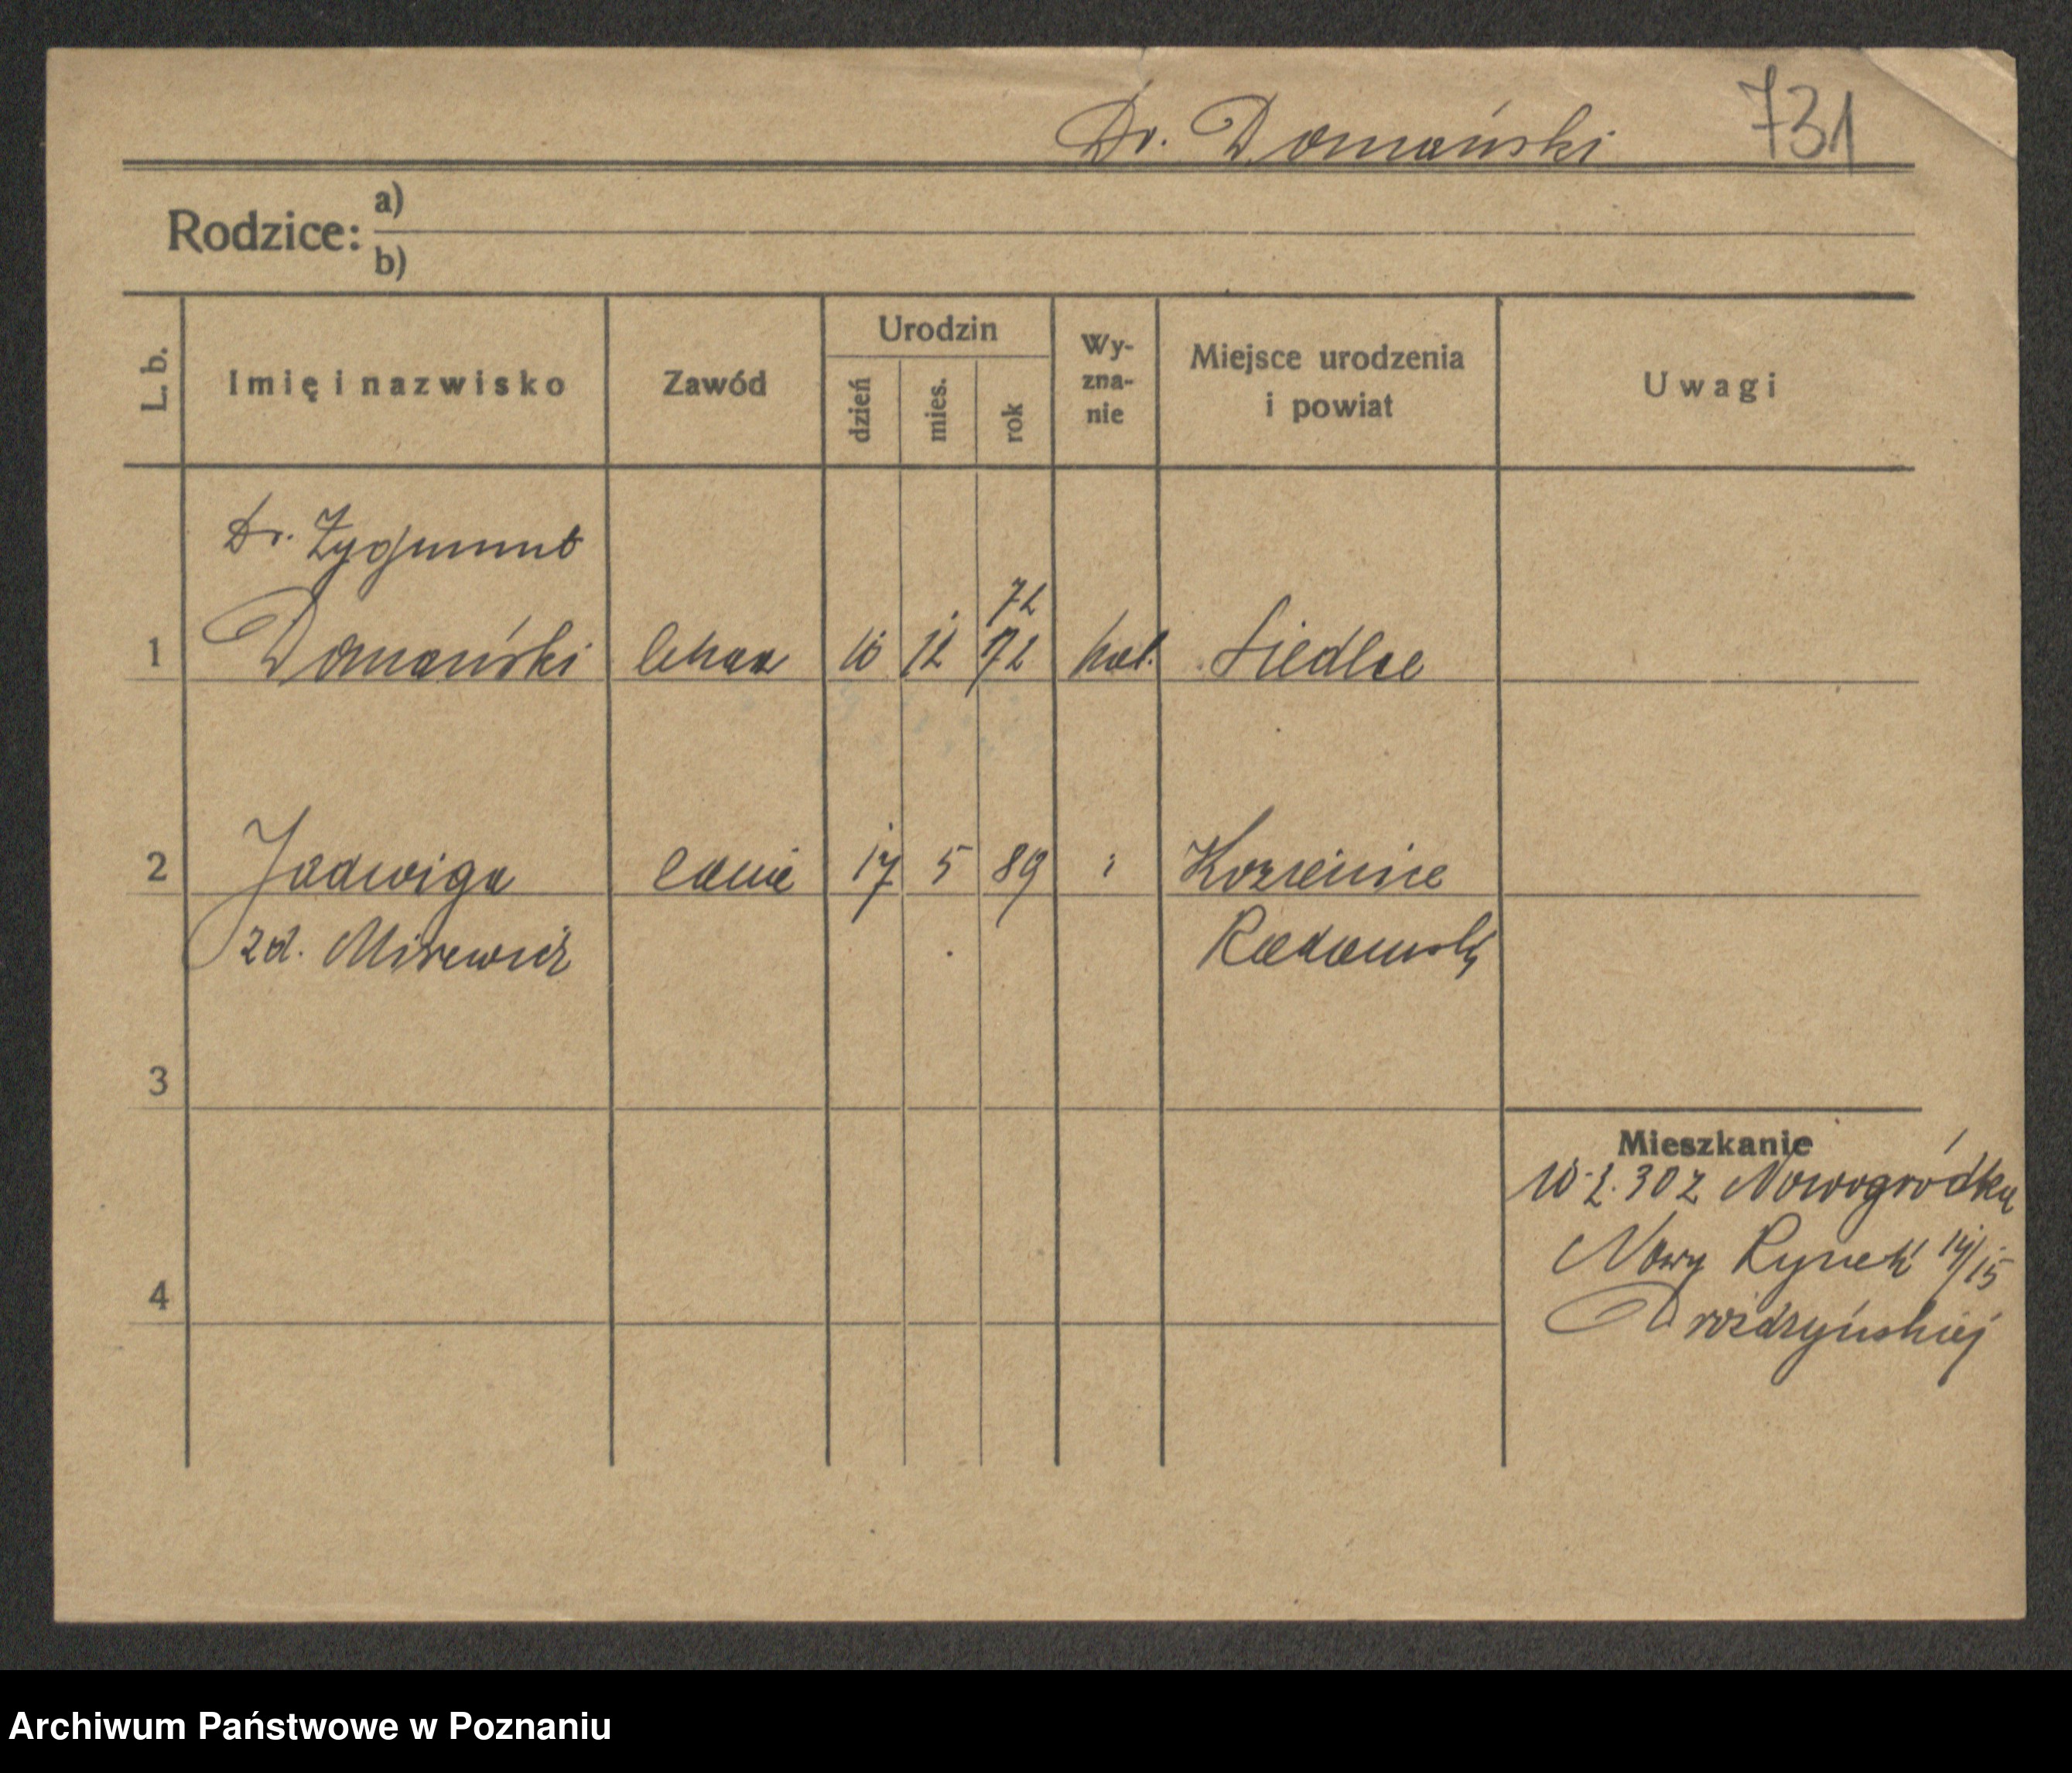 Dr. Domański 731
Rodzice: a)
b)
L. b. Imię i nazwisko Zawód Urodzin dzień mies. rok Wy-zna-nie Miejsce urodzenia i powiat Uwagi
Dr. Zygmunt
72
1 Domański lekarz 10 12 72 kat. Siedlce
2 Jadwiga 17 5 89 Kozienice
zd. Radomski
3
Mieszkanie
30 z Nowogródka
Nowy Rynek 14/15
4
Drożdżyńskiej
Archiwum Państwowe w Poznaniu